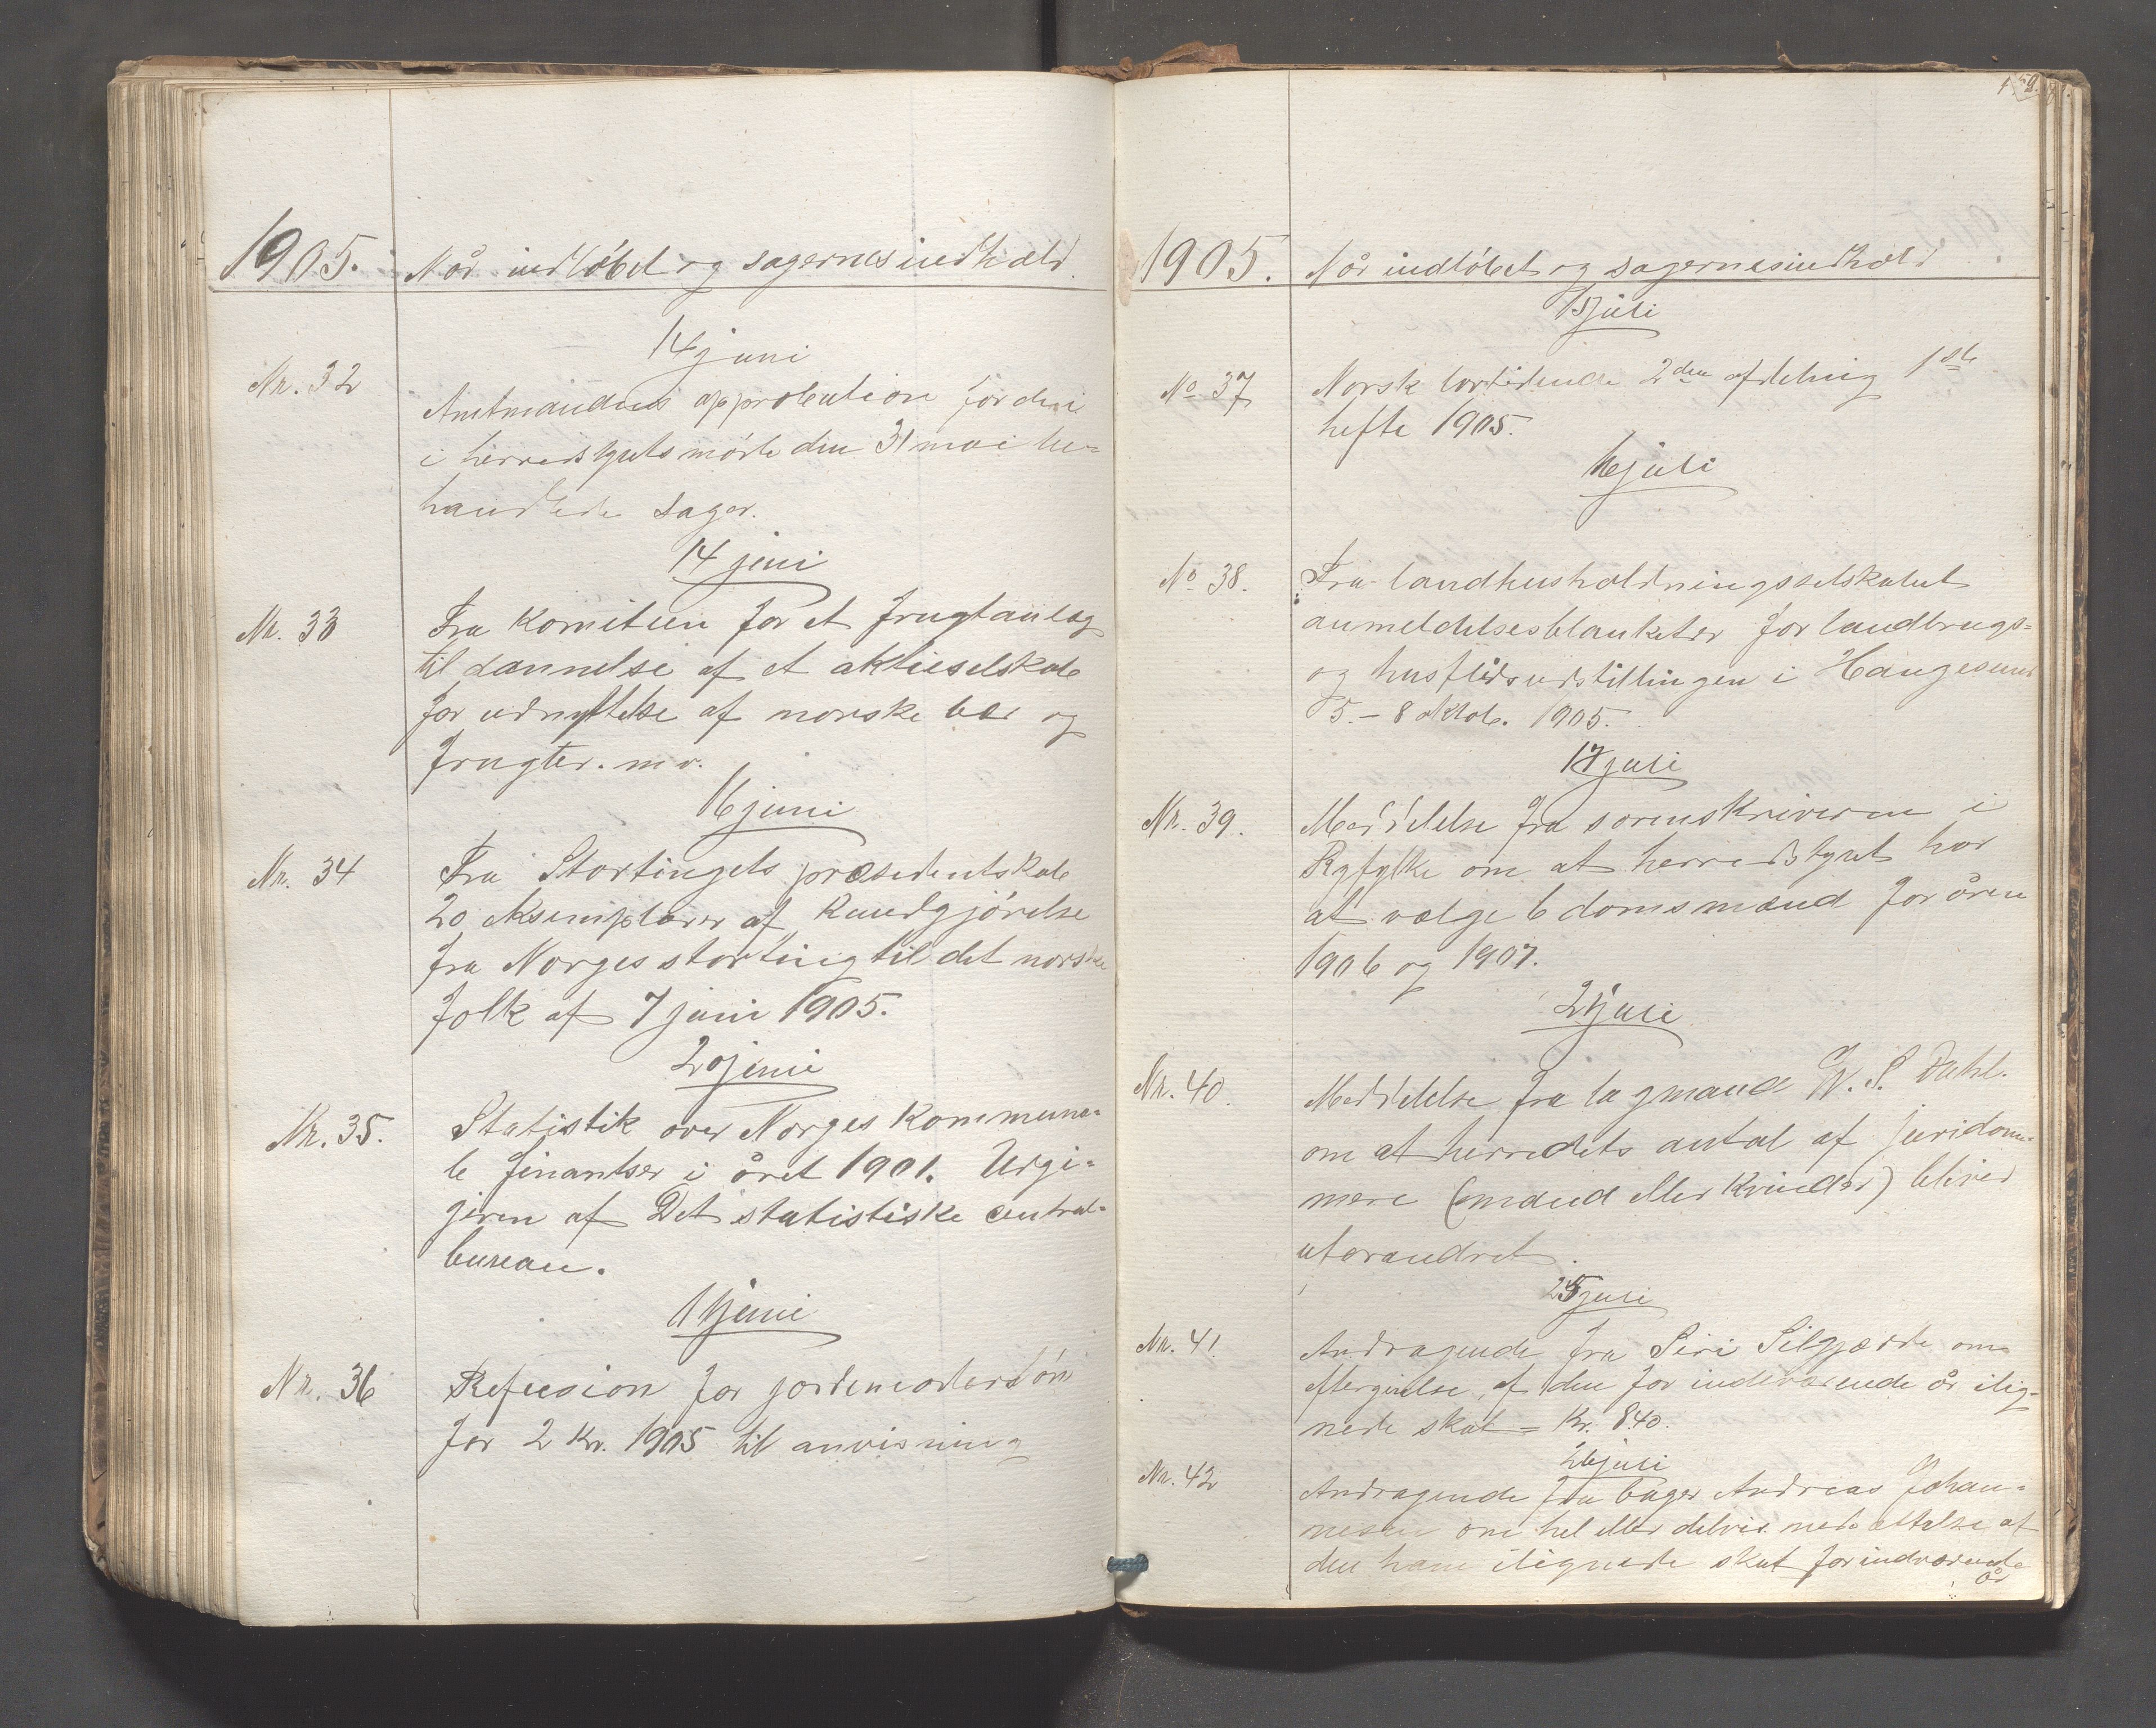 1905. Når indløbet og sagernes indhold.
14 juni
Nr. 32 Amtmandens approbation for den i
i herredstyretsmøde den 31 mai be-
handlede sager.
14 juni
Nr. 33 Fra komiteen for et frugtanlæg
til dannelse af et aktieselskab
for udnyttelse af norske bær og
frugter. m v.
16 juni
Nr. 34 Fra Stortingets præsidentskab
20 eksemplarer af kundgjørelse
fra Norges storting til det norske
folk af 7 juni 1905.
20 juni
Nr. 35. Statistik over Norges kommuna-
le finantser i året 1901. Udgi-
given af Det statistiske central-
bureau.
Nr. 36 Refusion for jordemoderløn
for 2 kv. 1905 til anvisning
1905. Når indløbet og sagernes indhold
juli
No 37 Norsk lovtidende 2den afdeling 1ste
hefte 1905.
16 juli
No 38. Fra landhusholdningsselskabet
anmeldelsesblanketter for landbrugs-
og husflidsudstillingen i Haugesund
5.-8 oktob. 1905.
17 juli
Nr. 39. Meddelelse fra sorenskriveren i
Ryfylke om at herredstyret har
at vælge 6 domsmænd for åren
1906 og 1907.
juli
Nr. 40. Meddelelse fra lagmand W. S. Dahl.
om at herredets antal af juridom-
mere (mænd eller kvinder) bliver
uforandret.
25 juli
Nr. 41 Andragende fra Siri Selgjærde om
eftergivelse af den for indeværende år ilig-
nede skat = kr. 8.40.
26 juli
Nr. 42 Andragende fra bager Andreas Johan-
nesen om hel eller delvis nedsættelse af
den ham ilignede skat for indværende
år